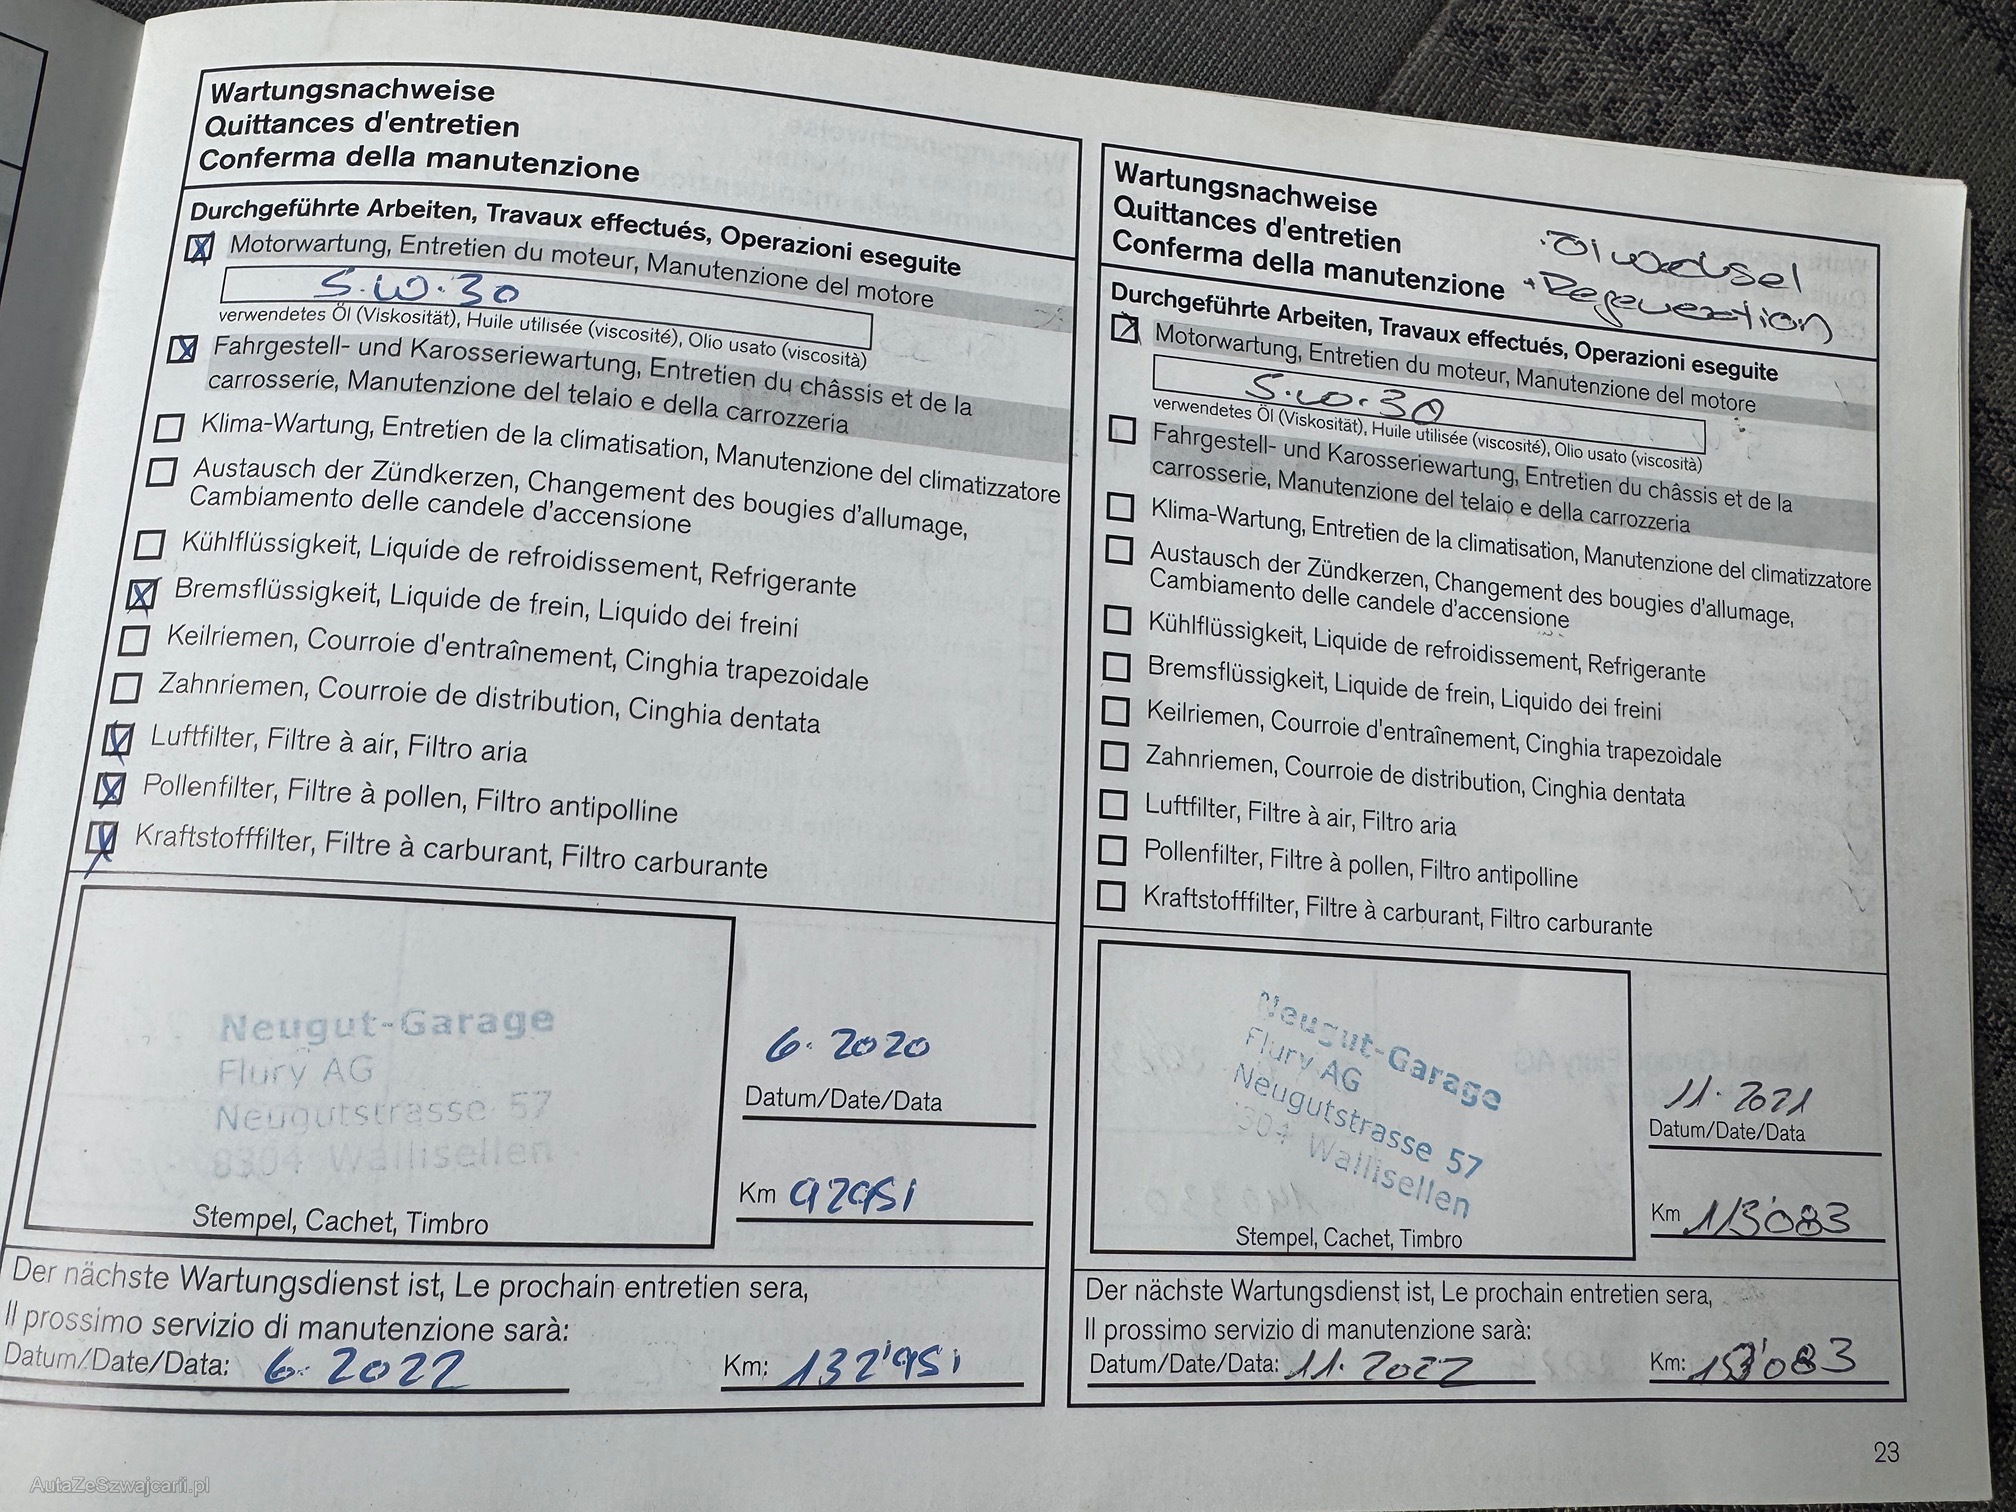 Wartungsnachweise
Quittances d'entretien
Conferma della manutenzione
Durchgeführte Arbeiten, Travaux effectués, Operazioni eseguite
Motorwartung, Entretien du moteur, Manutenzione del motore
5.W.30
verwendetes Öl (Viskosität), Huile utilisée (viscosité), Olio usato (viscosità)
Fahrgestell- und Karosseriewartung, Entretien du châssis et de la
carrosserie, Manutenzione del telaio e della carrozzeria
Klima-Wartung, Entretien de la climatisation, Manutenzione del climatizzatore
Austausch der Zündkerzen, Changement des bougies d'allumage,
Cambiamento delle candele d'accensione
Kühlflüssigkeit, Liquide de refroidissement, Refrigerante
Bremsflüssigkeit, Liquide de frein, Liquido dei freini
Keilriemen, Courroie d'entraînement, Cinghia trapezoidale
Zahnriemen, Courroie de distribution, Cinghia dentata
Luftfilter, Filtre à air, Filtro aria
Pollenfilter, Filtre à pollen, Filtro antipolline
Kraftstofffilter, Filtre à carburant, Filtro carburante
Neugut-Garage
Flury AG
Neugutstrasse 57
8304 Wallisellen
Stempel, Cachet, Timbro
6.2020
Datum/Date/Data
Km 92951
Der nächste Wartungsdienst ist, Le prochain entretien sera,
Il prossimo servizio di manutenzione sarà:
Datum/Date/Data: 6.2022 Km: 132'951
Wartungsnachweise
Quittances d'entretien
Conferma della manutenzione
Ölwechsel
+ Regeneration
Durchgeführte Arbeiten, Travaux effectués, Operazioni eseguite
Motorwartung, Entretien du moteur, Manutenzione del motore
5.W.30
verwendetes Öl (Viskosität), Huile utilisée (viscosité), Olio usato (viscosità)
Fahrgestell- und Karosseriewartung, Entretien du châssis et de la
carrosserie, Manutenzione del telaio e della carrozzeria
Klima-Wartung, Entretien de la climatisation, Manutenzione del climatizzatore
Austausch der Zündkerzen, Changement des bougies d'allumage,
Cambiamento delle candele d'accensione
Kühlflüssigkeit, Liquide de refroidissement, Refrigerante
Bremsflüssigkeit, Liquide de frein, Liquido dei freini
Keilriemen, Courroie d'entraînement, Cinghia trapezoidale
Zahnriemen, Courroie de distribution, Cinghia dentata
Luftfilter, Filtre à air, Filtro aria
Pollenfilter, Filtre à pollen, Filtro antipolline
Kraftstofffilter, Filtre à carburant, Filtro carburante
Neugut-Garage
Flury AG
Neugutstrasse 57
304 Wallisellen
Stempel, Cachet, Timbro
11.2021
Datum/Date/Data
Km 113'083
Der nächste Wartungsdienst ist, Le prochain entretien sera,
Il prossimo servizio di manutenzione sarà:
Datum/Date/Data: 11.2022 Km:
23
AutaZeSzwajcarii.pl